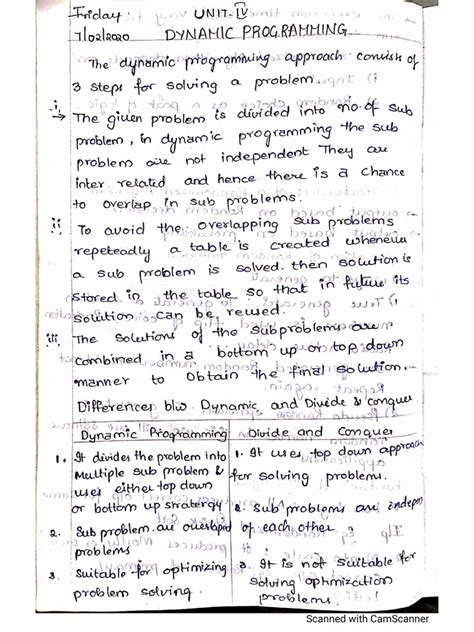 Friday:
UNIT-IV
7/02/2020
DYNAMIC PROGRAMMING
The dynamic programming approach consists of
3 steps for solving a problem
i. The given problem is divided into no. of sub
problem, in dynamic programming the sub
problem are not independent They are
inter related and hence there is a chance
to overlap in sub problems.
ii. To avoid the overlapping sub problems
repeteadly a table is created whenever
a sub problem is solved. then solution is
stored in the table so that in future its
solution can be reused.
iii. The solutions of the subproblems are
combined in a bottom up or top down
manner to obtain the final solution.
Differences b/w Dynamic and Divide & conquer
Dynamic Programming
1. It divides the problem into
Multiple sub problem &
uses either top down
or bottom up stratergy
2. Sub problem are overlaped
problems
3. Suitable for optimizing
problem solving
Divide and Conquer
1. It uses top down approach
for solving problem.
2. Sub problems are indepen
of each other
3. It is not suitable for
solving optimization
problems.
Scanned with CamScanner